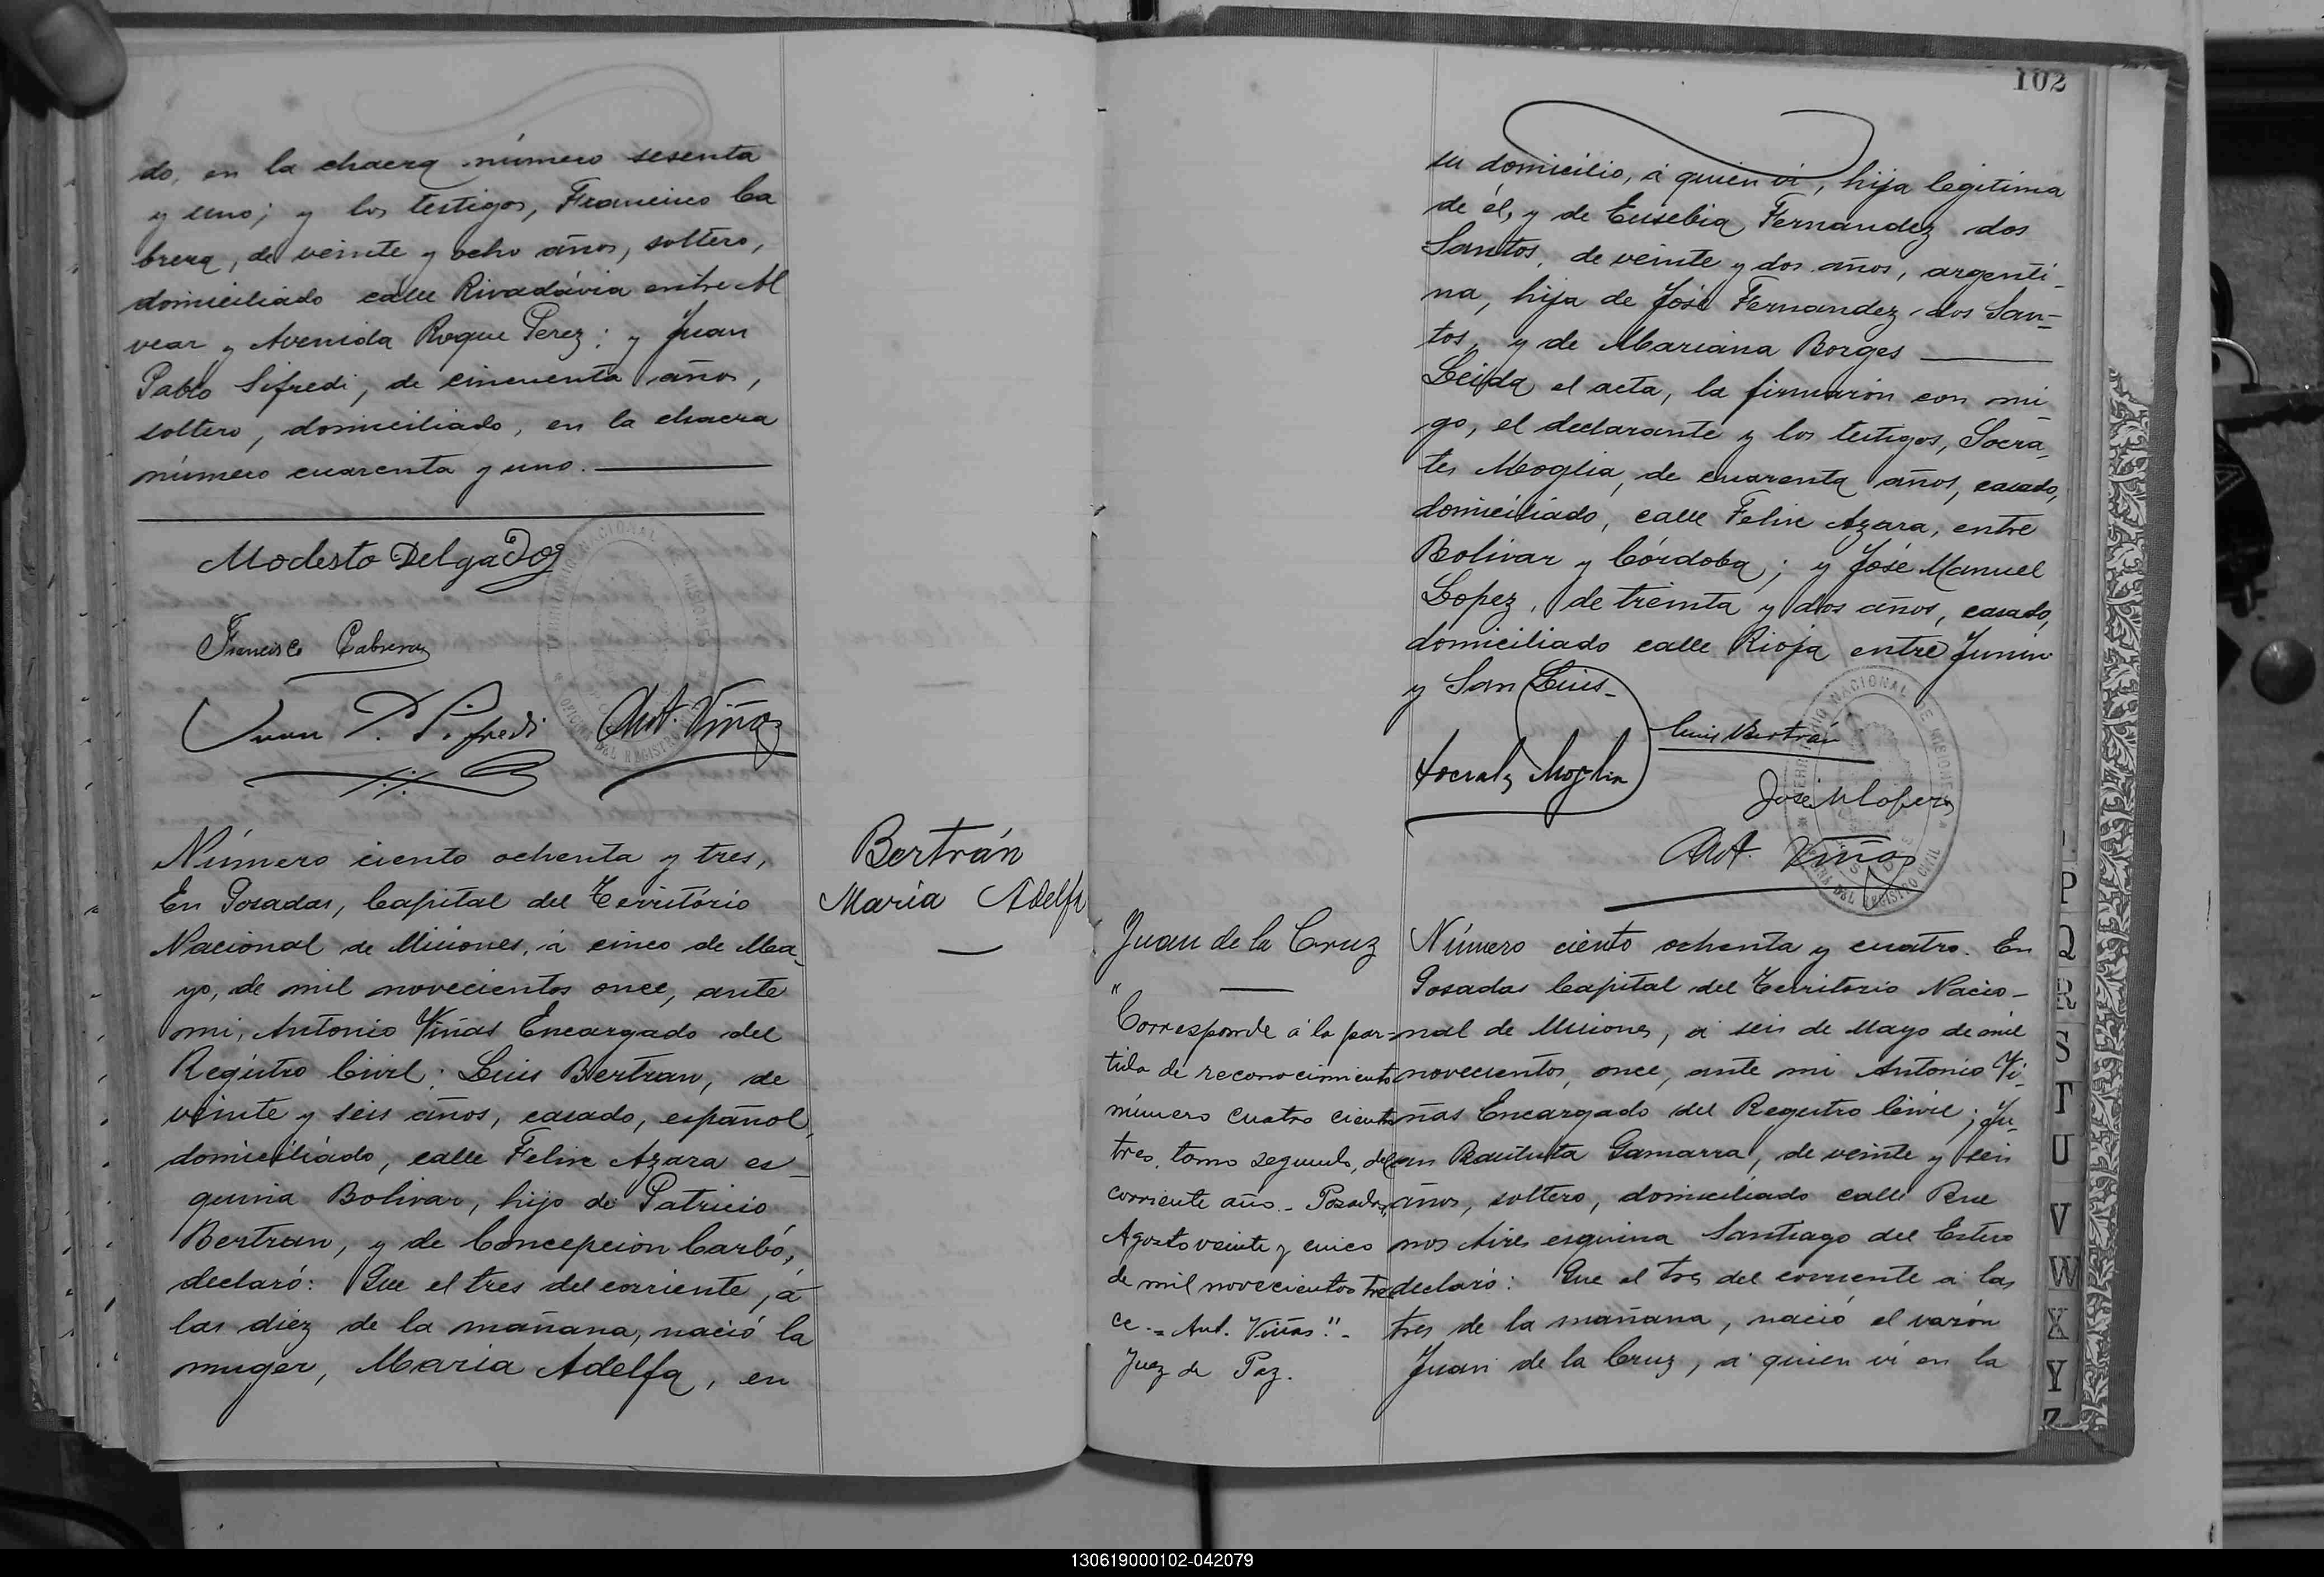 do, en la chacra número sesenta
y uno; y los testigos, Francisco Ca
brera, de veinte y ocho años, soltero,
domiciliado calle Rivadávia entre Al
vear y Avenida Roque Perez; y Juan
Pablo Sifredi, de cincuenta años,
soltero, domiciliado, en la chacra
número cuarenta y uno.
Modesto Delgado
Francisco Cabrera
Juan P. Sifredi Ant. Viñas
Número ciento ochenta y tres,
En Posadas, Capital del Território
Nacional de Misiones, á cinco de Ma-
yo, de mil novecientos once, ante
mi, Antonio Viñas Encargado del
Registro Civil: Luis Bertran, de
veinte y seis años, casado, español,
domiciliado, calle Felix Azara es-
quina Bolivar, hijo de Patricio
Bertran, y de Concepcion Carbó,
declaró: Que el tres del corriente, á
las diez de la mañana, nació la
muger, Maria Adelfa, en
Bertrán
María Adelfa
102
su domicilio, á quien vi, hija legitima
de él, y de Eusebia Fernandez dos
Santos, de veinte y dos años, argenti-
na, hija de José Fernandez dos San-
tos, y de Mariana Borges
Leida el acta, la firmarón con mi-
go, el declarante y los testigos, Socra-
tes Moglia, de cuarenta años, casado,
domiciliado, calle Felix Azara, entre
Bolivar y Córdoba; y José Manuel
Lopez, de treinta y dos años, casado,
domiciliado calle Rioja entre Junin
y San Luis-
Luis Bertrán
Socrates Moglia
José M Lopez
Ant. Viñas
Juan de la Cruz
"Corresponde á la par-
tida de reconocimiento
número cuatro ciento
tres, tomo segundo, del
corriente año.- Posadas,
Agosto veinte y cinco
de mil novecientos tre
ce.- Ant. Viñas".-
Juez de Paz.
Número ciento ochenta y cuatro. En
Posadas Capital del Territorio Nacio-
nal de Misiones, á seis de Mayo de mil
novecientos, once, ante mi Antonio Vi-
ñas Encargado del Registro Civil; Ju-
an Bautista Gamarra, de veinte y seis
años, soltero, domiciliado calle Bue
nos Aires esquina Santiago del Estero
declaró: Que el tres del corriente á las
tres de la mañana, nació el varón
Juan de la Cruz, á quien vi en la
P
Q
R
S
T
U
V
W
X
Y
Z
130619000102-042079